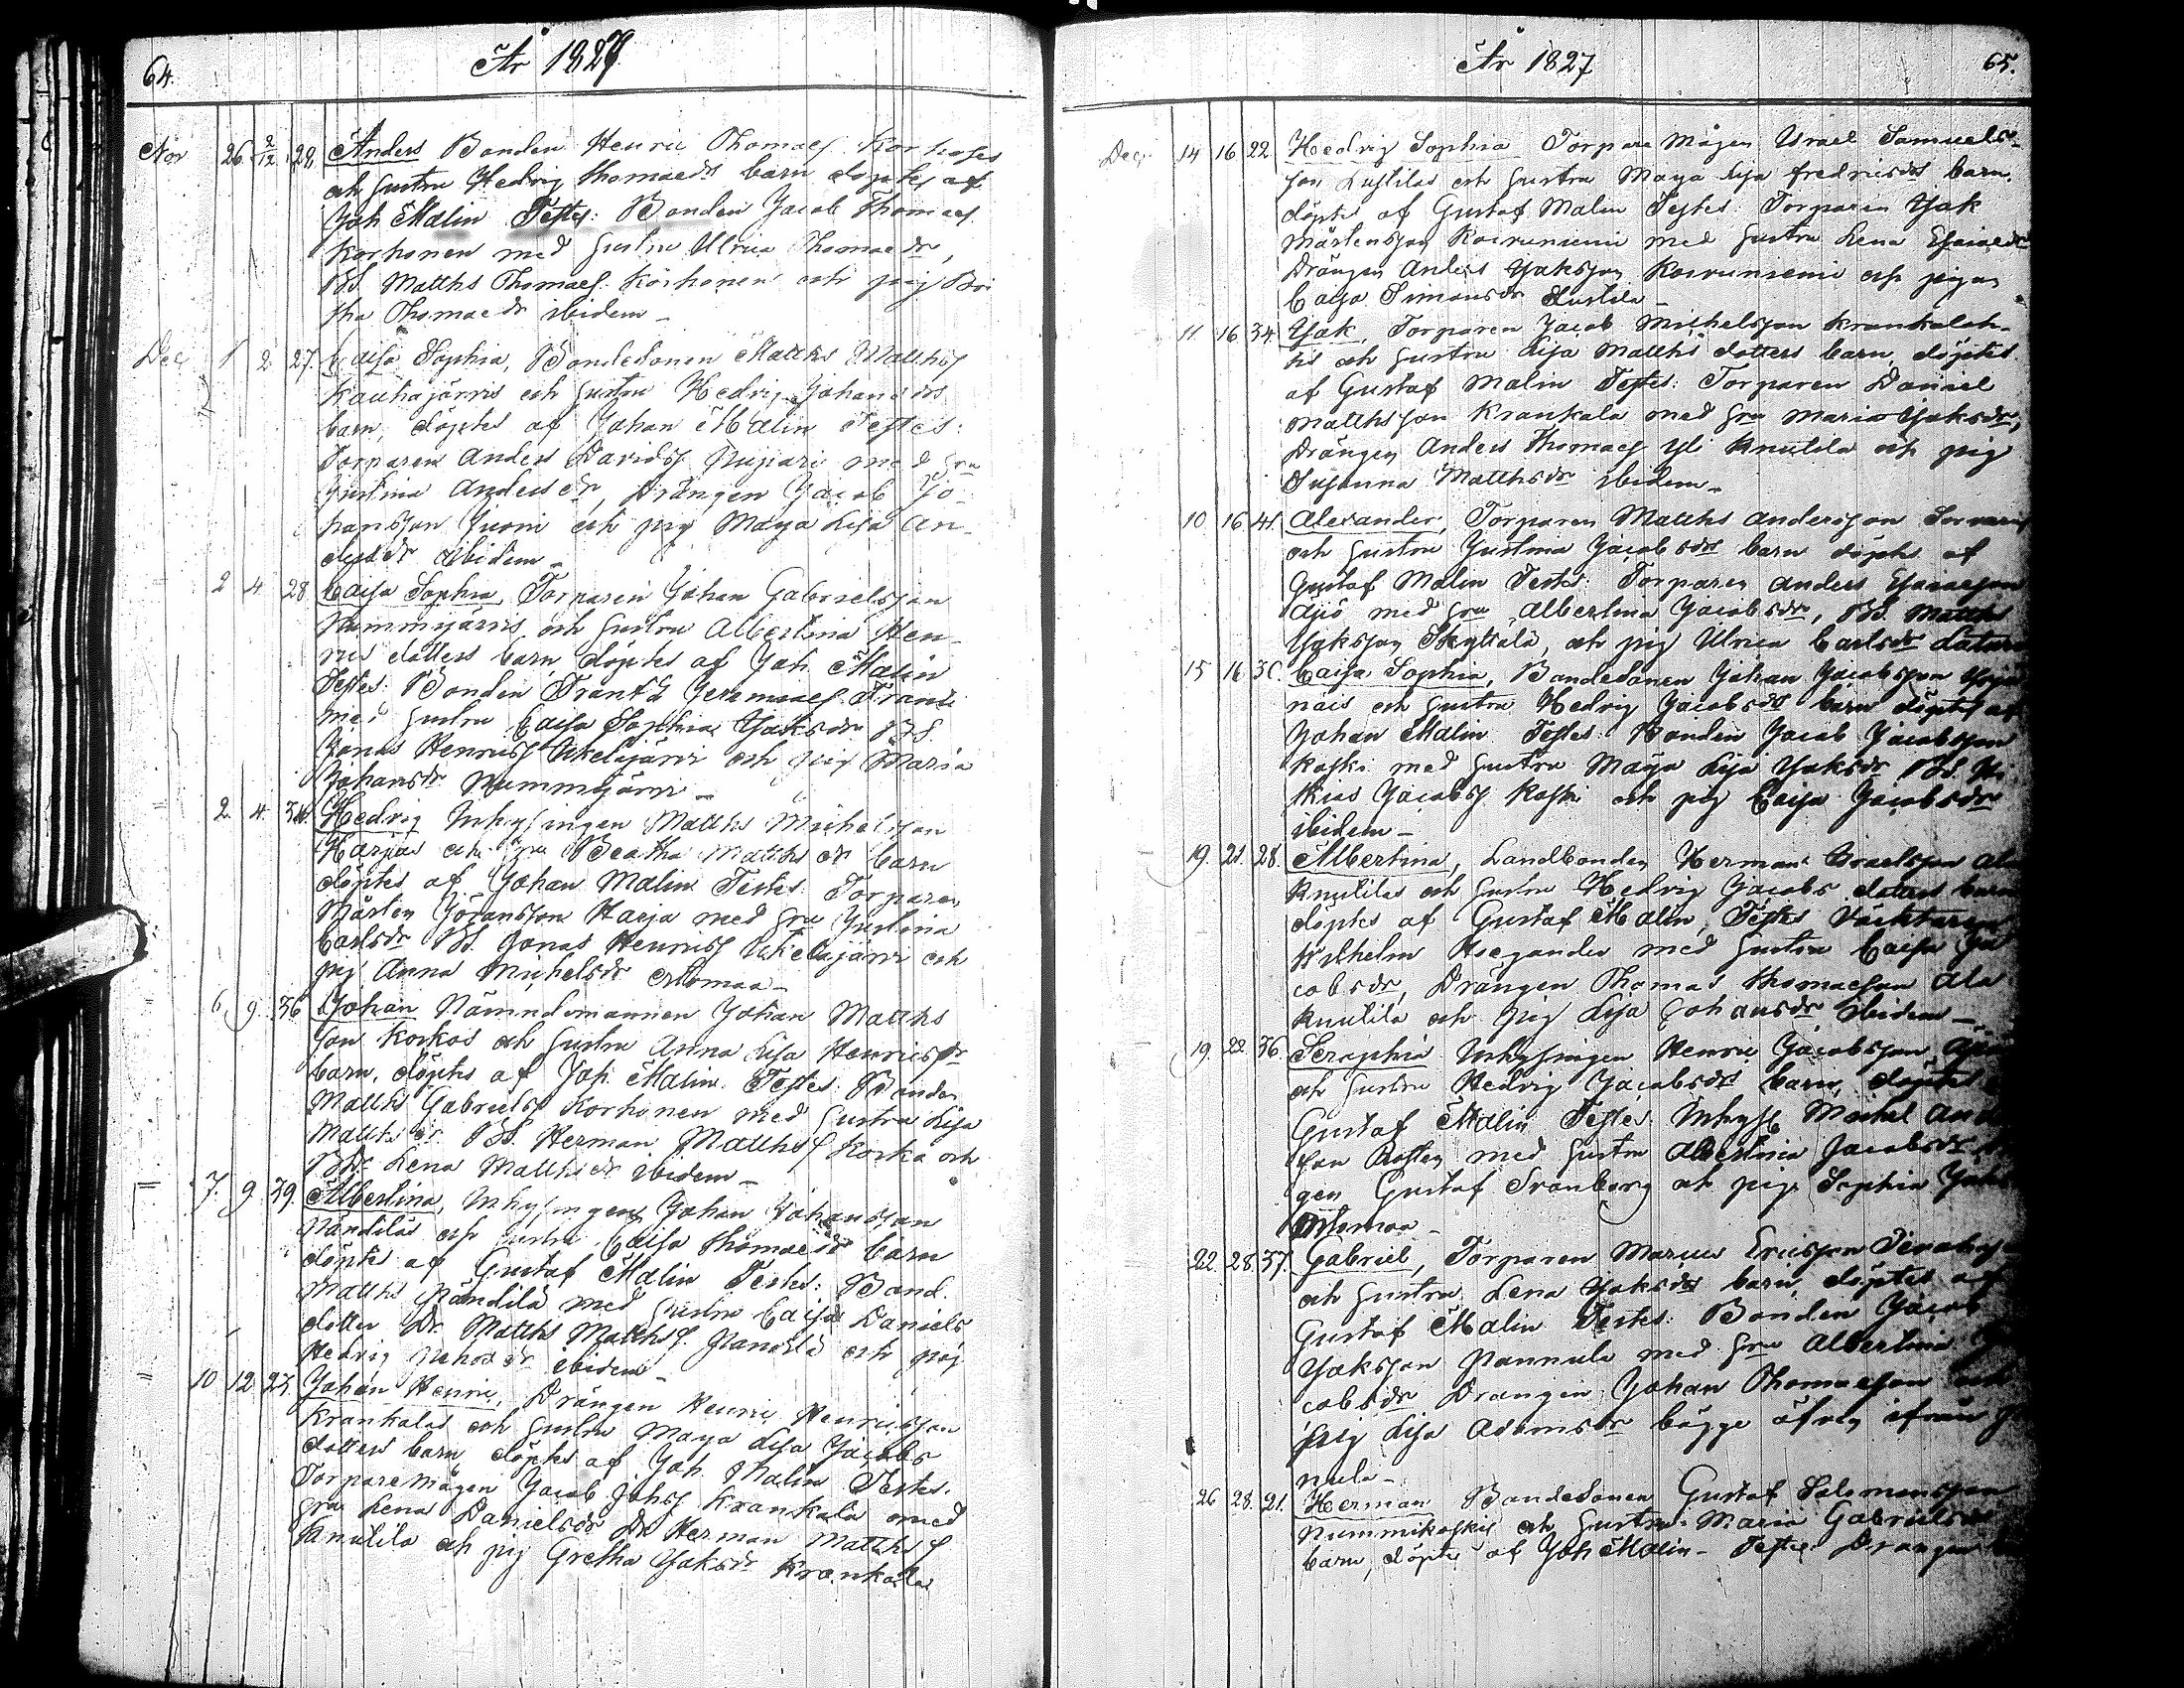 64.
År 1827
Nov 26 2/12 28. Anders Bonden Henric Thomaes. Korhoses
och hustru Hedvig Thomaedrs barn döptes af
Joh Malin Testes: Bonden Jacob Thomaes.
Korhonen med hustru Ulrica Thomaedr,
BS. Matths Thomaes. Korhonen och pig Bri
tha Thomaedr ibidem –
Dec 1 2 27. Caisa Sophia, Bondesonen Matths Matths
Kauhajärvis och hustru Hedvig Johansdrs
barn, döptes af Johan Malin Testes:
Torparen Anders Davids med hru
Justina Andersdr, Drängen Jacob Jo-
hansson och pig Maya Lisa An-
dersdr ibidem –
2 4 28 Caisa Sophia, Torparen Johan Gabrielsson
Nummijärvis och hustru Albertina Hen-
rics dotters barn döptes af Joh. Malin
Testes: Bonden Frantz Jeremiaes. Frant
med hustru Caisa Sophia Jaksdr BS.
Jonas Henrics Ikelajärvi och pig Maria
Johansdr Nummijärvi –
2. 4. 34. Hedvig Inhysingen Matths Michelsson
Harjas och hru Beatha Matthsdr barn
döptes af Johan Malin Testes: Torparen
Mårten Göransson Harja med hru Justina
Carlsdr BS. Jonas Henrics Ikelajärvi och
pig Anna Michelsdr
6 9. 36 Johan Nämndemannen Johan Matths
son Korkos och hustru Anna Lisa Henricsdr
barn, döptes af Joh. Malin. Testes: Bonden
Matths Gabriels Korhonen med hustru Lisa
Matthsdr. BS. Herman Matths Korka och
Bdr Lena Matthsdr ibidem –
7. 9 39. Albertina, Inhysingen Johan Johansson
Nandilas och hustru Caisa Thomaedr barn
döptes af Gustaf Malin Testes: Bond.
Matths Nandila med hustru Caisa Daniels
dotter Dr. Matths Matths. Nandila och pig
Hedvig ibidem –
10 12 23 Johan Henric, Drängen Henric Henricsson
Krankalas och hustru Maya Lisa Jacobs
dotters barn döptes af Joh. Malin Testes.
Torpare Mågen Jacob Johs Krankala med
hru Lena Danielsdr Dr Herman Matths
Knutila och pig Gretha Jaksdr Krankala
År 1827
65.
Dec. 14 16 22. Hedvig Sophia Torpare Mågen Israel Samuels-
son Lustilas och hustru Maya Lisa Fredricsdrs barn.
döptes af Gustaf Malin Testes: Torparen Jak
Mårtensson Koivuniemi med hustru Lena Esaiaedr
Drängen Anders Jaksson Koivuniemi och pigan
Caisa Simonsdr Lustila –
11 16 34. Jak, Torparen Jacob Michelsson Krankalah-
tis och hustru Lisa Matths dotters barn, döptes
af Gustaf Malin Testes: Torparen Daniel
Matthsson Krankala med hru Maria Jaksdr,
Drängen Anders Thomaes Yli Knutila och pig
Susanna Matthsdr ibidem –
10 16 41. Alexander, Torparen Matths Andersson
och hustru Justina Jacobsdrs barn döptes af
Gustaf Malin Testes: Torparen Anders Esaiaeson
Ajo med hru Albertina Jacobsdr, BS. Matths
Jaksson Skyttälä, och pig Ulrica Carlsdr
15 16 30. Caisa Sophia, Bondesonen Johan Jacobsson
näis och hustru Hedvig Jacobsdrs barn döptes af
Johan Malin Testes: Bonden Jacob Jacobsson
Koski med hustru Maya Lisa Jaksdr BS.
Jacobs. Koski och pig Caisa Jacobsdr
ibidem –
19. 21. 28. Albertina, Landbonden Herman Israelsson Ala
Knutilas och hustru Hedvig Jacobs dotters barn
döptes af Gustaf Malin, Testes
Wilhelm med hustru Caisa Ja
cobsdr, Drängen Thomas Thomaeson Ala
Knutila och pig Lisa Johansdr ibidem –
19. 22. 36. Seraphia Inhysingen Henric Jacobsson
och hustru Hedvig Jacobsdrs barn, döptes
Gustaf Malin Testes: Inhys Michel And
son med hustru Albertina Jacobsdr
gen Gustaf Svanberg och pige Sophia
22. 28. 37. Gabriel, Torparen Marcus Ericsson
och hustru Lena Jaksdrs barn, döptes af
Gustaf Malin Testes: Bonden Jacob
Jaksson Nannula med hru Albertina Ja
cobsdr. Drängen Johan Thomaeson och
pig Lisa Adamsdr bägge ifrån
nula –
26 28. 21. Herman Bondesonen Gustaf Salomonsson
Nummikoskis och hustru Maria Gabrielsdr
barn, döptes af Joh Malin – Testes Drängen